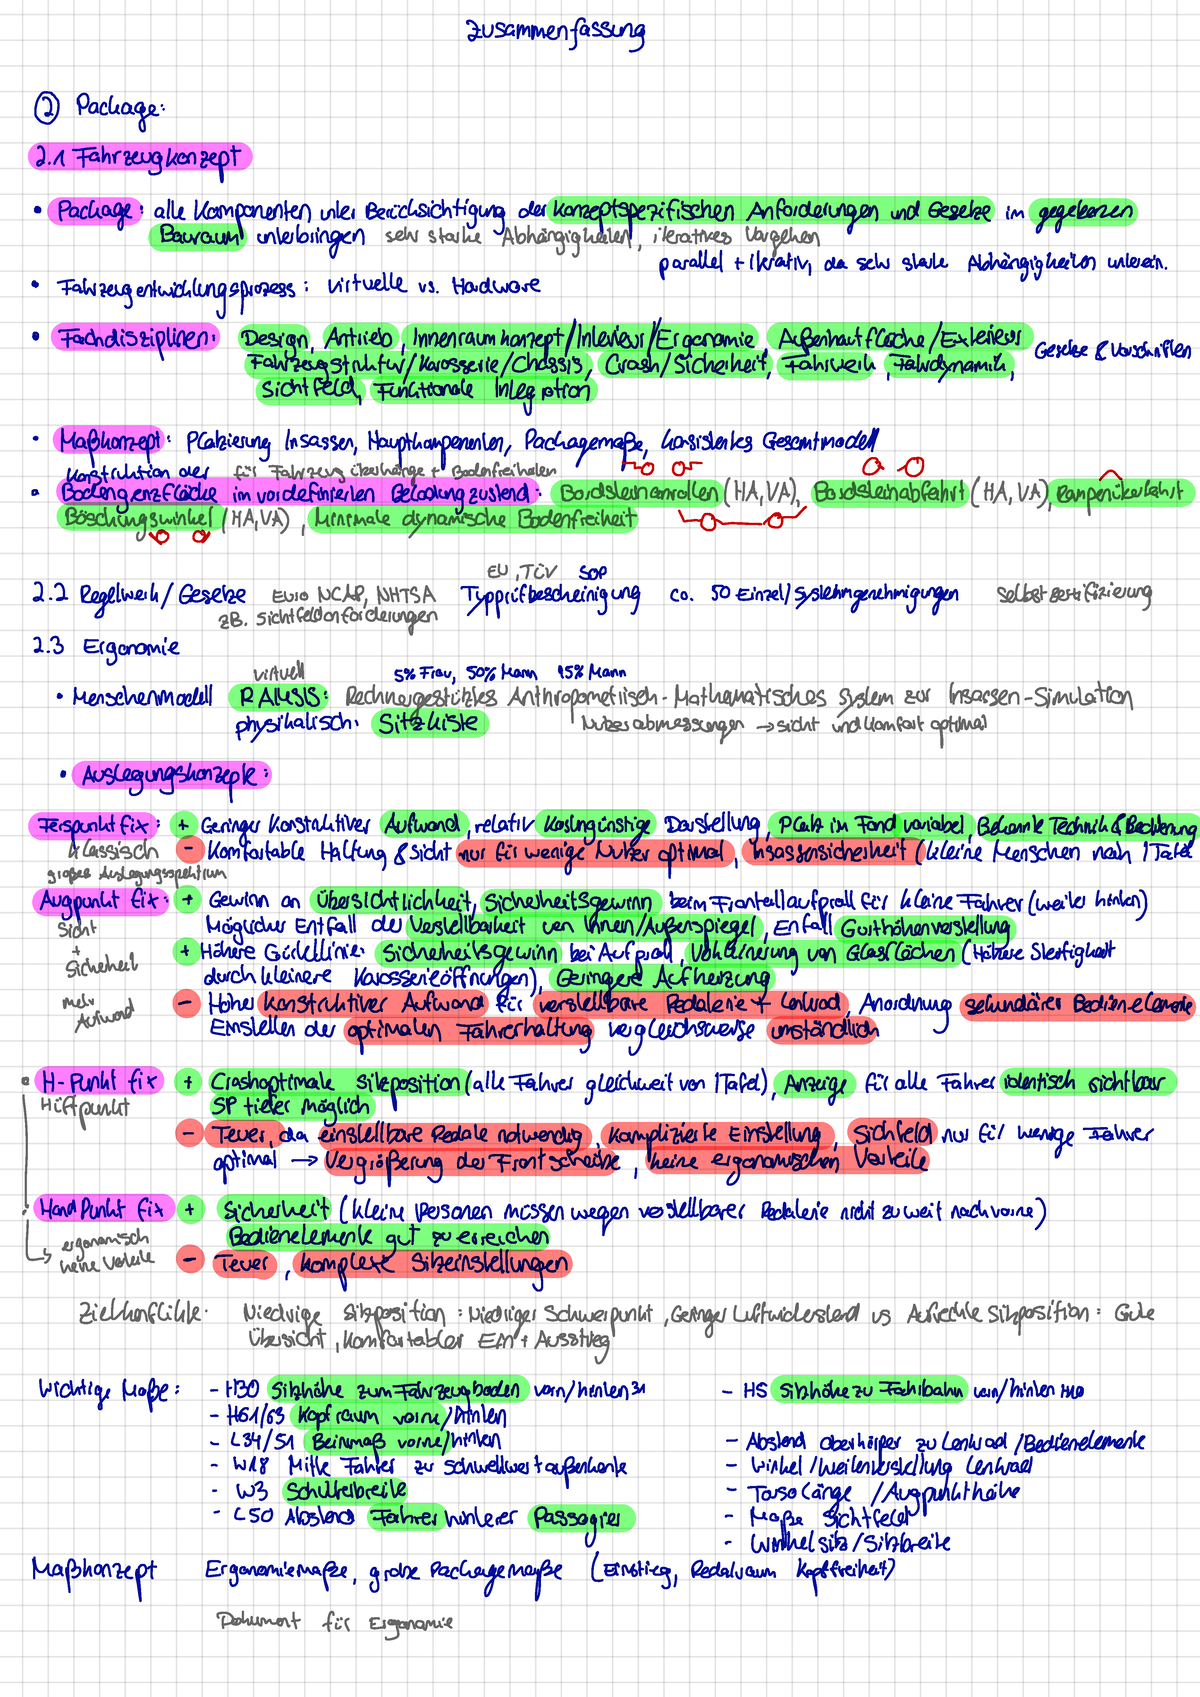 Zusammenfassung
② Package:
2.1 Fahrzeugkonzept
• Package: alle Komponenten unter Berücksichtigung der konzeptspezifischen Anforderungen und Gesetze im gegebenen
Bauraum unterbringen sehr starke Abhängigkeiten, iteratives Vorgehen
parallel + iterativ, da sehr starke Abhängigkeiten unterein.
• Fahrzeugentwicklungsprozess: virtuelle vs. Hardware
• Fachdisziplinen: Design, Antrieb, Innenraumkonzept/Interieur/Ergonomie Außenhautfläche/Exterieur
Gesetze & Vorschriften
Fahrzeugstruktur/Karosserie/Chassis, Crash/Sicherheit, Fahrwerk, Fahrdynamik,
Sichtfeld, Funktionale Integration
• Maßkonzept: Platzierung Insassen, Hauptkomponenten, Packagemaße, konsistentes Gesamtmodell
Konstruktion der für Fahrzeugüberhänge + Bodenfreiheiten
• Bodengrenzfläche im vordefinierten Beladungszustand: Bordsteinanrollen (HA, VA), Bordsteinabfahrt (HA, VA), Rampenüberfahrt
Böschungswinkel (HA, VA), Minimale dynamische Bodenfreiheit
EU, TÜV SOP
2.2 Regelwerk/Gesetze Euro NCAP, NHTSA Typprüfbescheinigung ca. 50 Einzel/Systemgenehmigungen Selbstzertifizierung
zB. Sichtfeldanforderungen
2.3 Ergonomie
virtuell 5% Frau, 50% Mann 95% Mann
• Menschenmodell RAMSIS: Rechnergestütztes Anthropometrisch-Mathematisches System zur Insassen-Simulation
physikalisch: Sitzkiste Nutzerabmessungen → sicht und Komfort optimal
• Auslegungskonzepte:
Ferspunkt fix: + Geringer Konstruktiver Aufwand, relativ kostengünstige Darstellung, Platz im Fond variabel, Bekannte Technik & Bedienung
klassisch - Komfortable Haltung & Sicht nur für wenige Nutzer optimal, Insassensicherheit (kleine Menschen nah ITafel
großes Auslegungsspektrum
Augpunkt fix: + Gewinn an Übersichtlichkeit, Sicherheitsgewinn beim Frontallaufprall für kleine Fahrer (weiter hinten)
Sicht Möglicher Entfall der Verstellbarkeit von Innen/Außenspiegel, Enfall Gurthöhenverstellung
+
Sicherheit + Höhere Gürtellinie: Sicherheitsgewinn bei Aufprall, Verkleinerung von Glasflächen (Höhere Steifigkeit
durch kleinere Karosserieöffnungen), Geringere Aufheizung
mehr Aufwand - Hoher konstruktiver Aufwand für verstellbare Pedalerie + Lenkrad, Anordnung sekundärer Bedienelemente
Einstellen der optimalen Fahrerhaltung vergleichsweise umständlich
• H-Punkt fix + Crashoptimale Sitzposition (alle Fahrer gleichweit von ITafel), Anzeige für alle Fahrer identisch sichtbar
Hüftpunkt SP tiefer möglich
- Teuer, da einstellbare Pedale notwendig, komplizierte Einstellung, Sichfeld nur für wenige Fahrer
optimal → Vergrößerung der Frontscheibe, keine ergonomischen Vorteile
Hand Punkt fix + Sicherheit (kleine Personen müssen wegen verstellbarer Pedalerie nicht zu weit nach vorne)
Bedienelemente gut zu erreichen
ergonomisch
keine Vorteile - Teuer, komplexe Sitzeinstellungen
Zielkonflikte: Niedrige Sitzposition: Niedriger Schwerpunkt, Geringer Luftwiderstand vs Aufrechte Sitzposition: Gute
Übersicht, Komfortabler Ein + Ausstieg
Wichtige Maße: - H30 Sitzhöhe zum Fahrzeugboden vorn/hinten 31 - H5 Sitzhöhe zu Fahrbahn vorn/hinten H10
- H61/63 Kopfraum vorne/hinten
- L34/51 Beinmaß vorne/hinten - Abstand oberkörper zu Lenkrad/Bedienelemente
- W18 Mitte Fahrer zu Schwellwertaußenkante - Winkel/Weitenverstellung Lenkrad
- W3 Schulterbreite - Torso Länge /Augpunkthöhe
- L50 Abstand Fahrer hinterer Passagier - Maße Sichtfeld
- Winkel sitz/Sitzbreite
Maßkonzept Ergonomiemaße, grobe Packagemaße (Einstieg, Pedalraum Kopffreiheit)
Dokument für Ergonomie